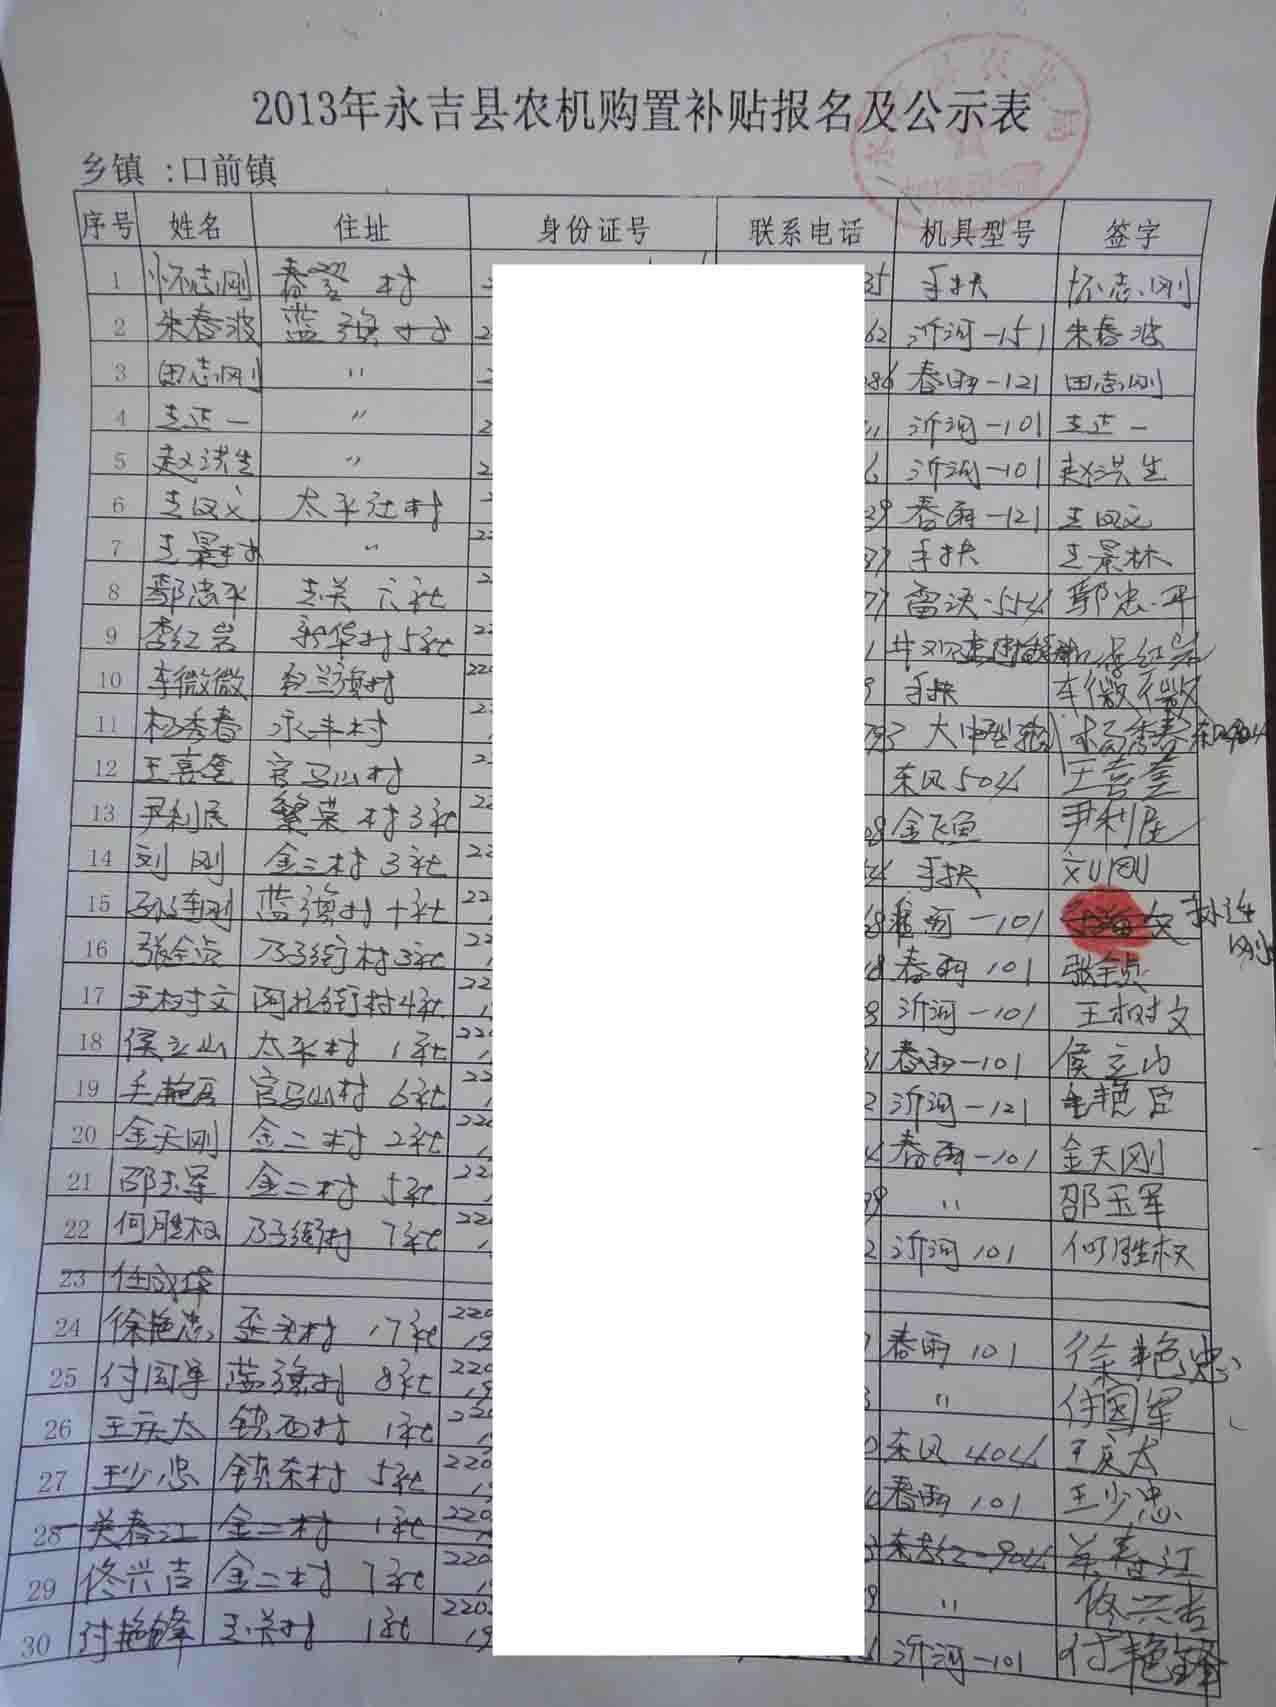 2013年永吉县农机购置补贴报名及公示表
乡镇 :口前镇
序号 姓名 住址 身份证号 联系电话 机具型号 签字
1 怀志刚 春登 村 35 手扶 怀志刚
2 朱春波 蓝旗村 2 62 沂河-151 朱春波
3 田志刚 " 2 86 春雨-121 田志刚
4 王正一 " 2 11 沂河-101 王正一
5 赵洪生 " 2 6 沂河-101 赵洪生
6 太平社村 29 春雨-121
7 王景林 " 22 手扶 王景林
8 鄢忠平 六社 雷沃-554 鄢忠平
9 李红岩 新华村5社 22 1 李红岩
10 李微微 旗村 220 9 手扶 李微微
11 杨秀春 永丰村 大中型 杨秀春
12 王喜奎 官马山村 东风504 王喜奎
13 尹利民 繁荣村3社 22 金飞鱼 尹利民
14 刘刚 金二村3社 22 手扶 刘刚
15 孙连刚 蓝旗村十社 22 春雨-101 孙连刚
16 张全贞 乃子街村3社 22 春雨101 张全贞
17 王树文 阿拉街村4社 22 沂河-101 王树文
18 侯立山 太平村 1社 220 春雨-101 侯立山
19 毛艳 官马山村 6社 22 2 沂河-121 毛艳
20 金天刚 金二村 2社 220 春雨-101 金天刚
21 邵玉军 金二村 5社 22 " 邵玉军
22 何胜权 乃子街村 7社 220 2 沂河101 何胜权
23 任成
24 徐艳忠 歪头村 17社 220 19 春雨101 徐艳忠
25 付国军 蓝旗村 8社 220 19 " 付国军
26 王庆太 镇西村 1社 220 东风404 王庆太
27 王少忠 镇东村 5社 220 19 春雨101 王少忠
28 关春江 金二村 1社 220 东方红-904 关春江
29 佟兴吉 金二村 7社 220 " 佟兴吉
30 付艳锋 村 1社 220 19 沂河-101 付艳锋